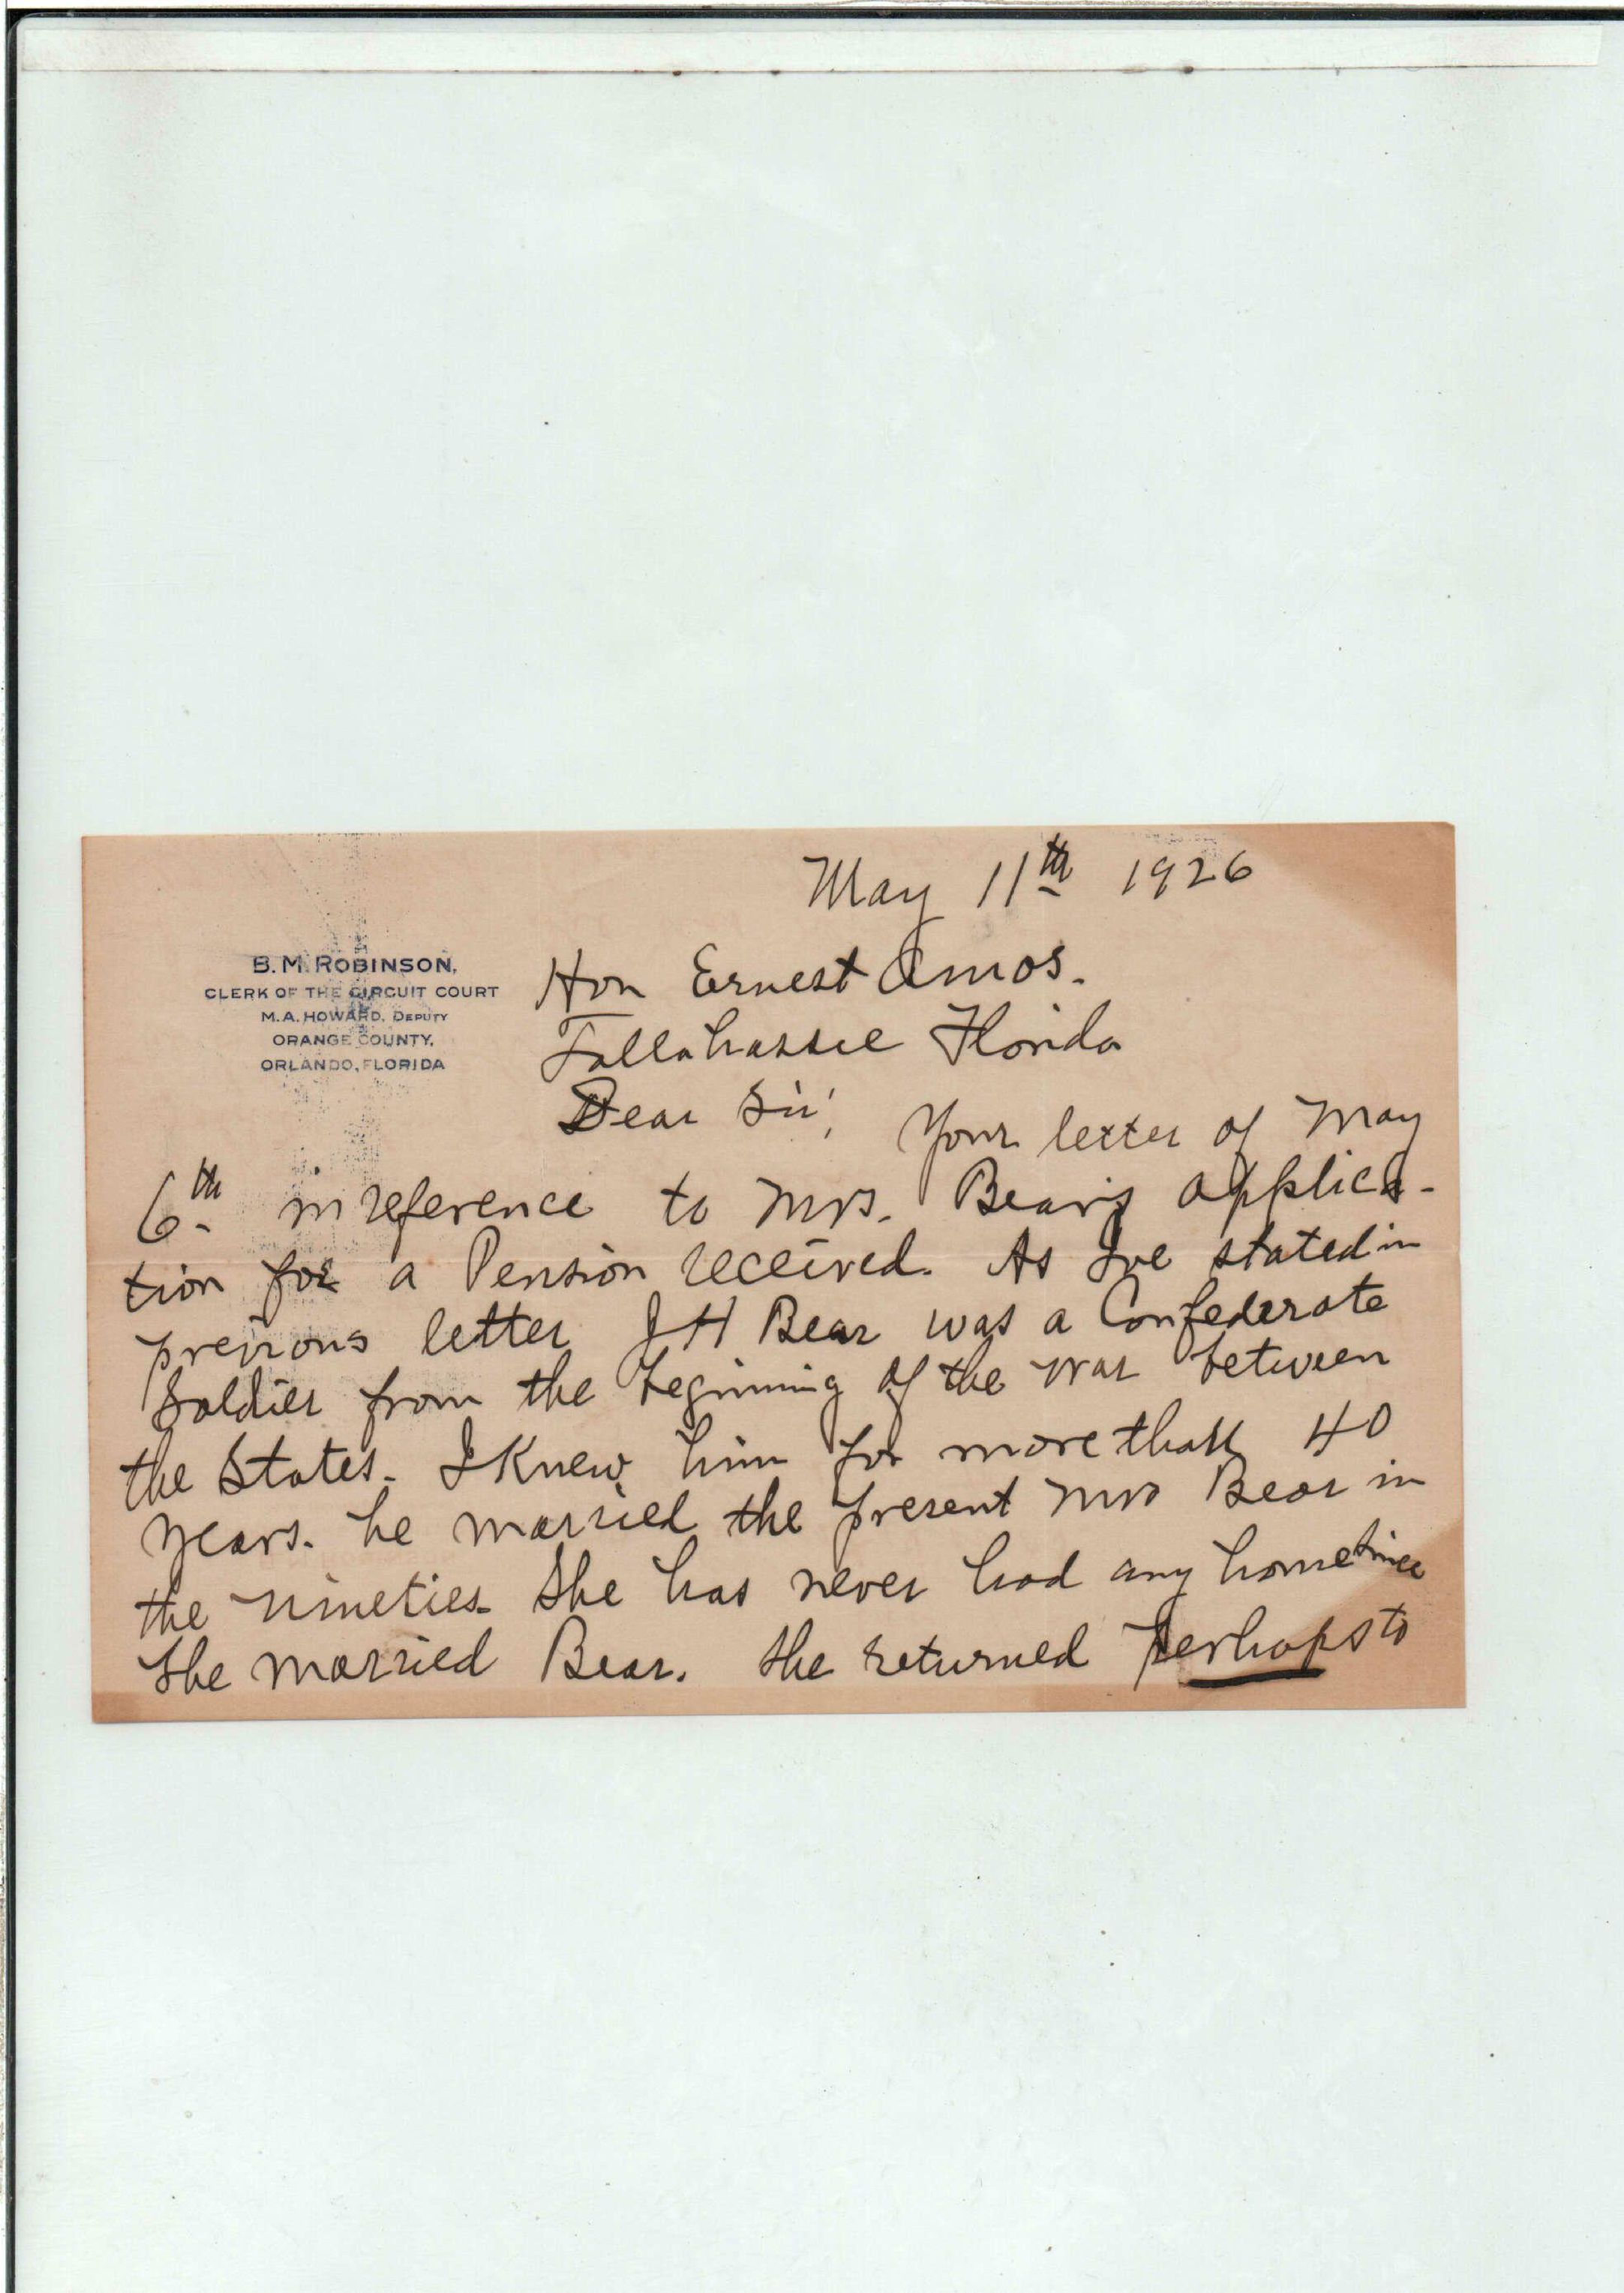 May 11th 1926
B. M. ROBINSON,
CLERK OF THE CIRCUIT COURT
M. A. HOWARD, DEPUTY
ORANGE COUNTY,
ORLANDO, FLORIDA
Hon Ernest Amos.
Tallahassee Florida
Dear Sir; Your letter of May
6th in reference to Mrs. Bear's applica-
tion for a Pension received. As Ive stated in
previous letter J H Bear was a Confederate
Soldier from the beginning of the War between
the States. I Knew him for more than 40
years. he married the present Mrs Bear in
the nineties. She has never had any home since
She married Bear. She returned perhaps to